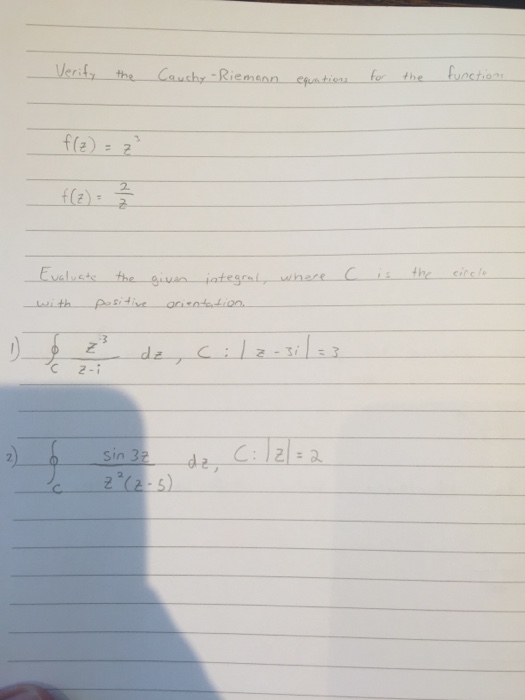 Verify the Cauchy-Riemann equations for the functions
f(z) = z³
f(z) = 2/z
Evaluate the given integral, where C is the circle
with positive orientation.
1) ∮_C z³/(z-i) dz, C: |z-3i| = 3
2) ∮_C sin 3z/(z²(z-5)) dz, C: |z| = 2